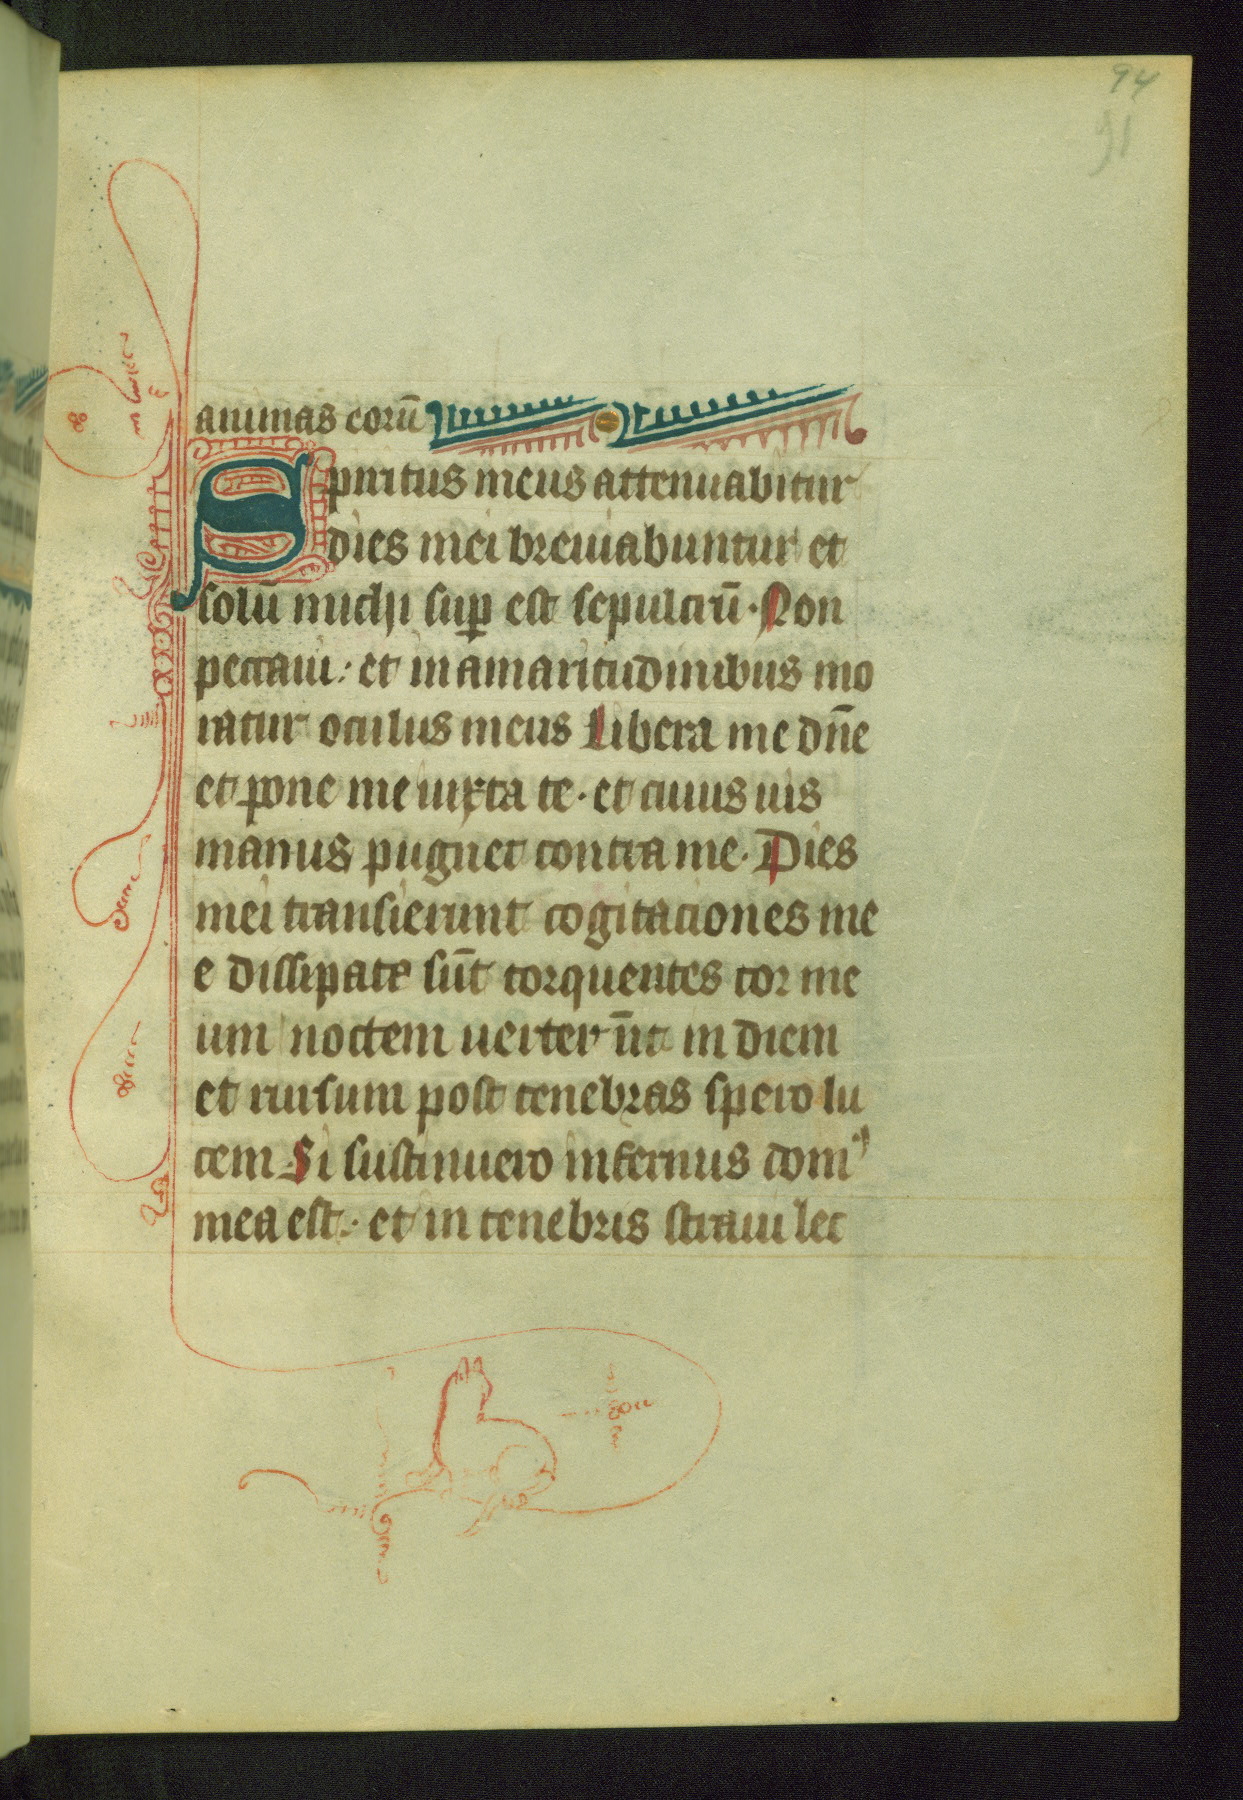 94
91
animas eorū
Spiritus meus attenuabitur
dies mei breuiabuntur et
solū michi suꝑ est sepulcrū. Non
peccaui: et in amaritudinibus mo
ratur oculus meus Libera me dn̄e
et pone me iuxta te. et cuius uis
manus pugnet contra me. Dies
mei transierunt cogitaciones me
e dissipate sūt torquentes cor me
um noctem uerterūt in diem
et rursum post tenebras spero lu
cem. Si sustinuero infernus dom᾽
mea est. et in tenebris straui lec